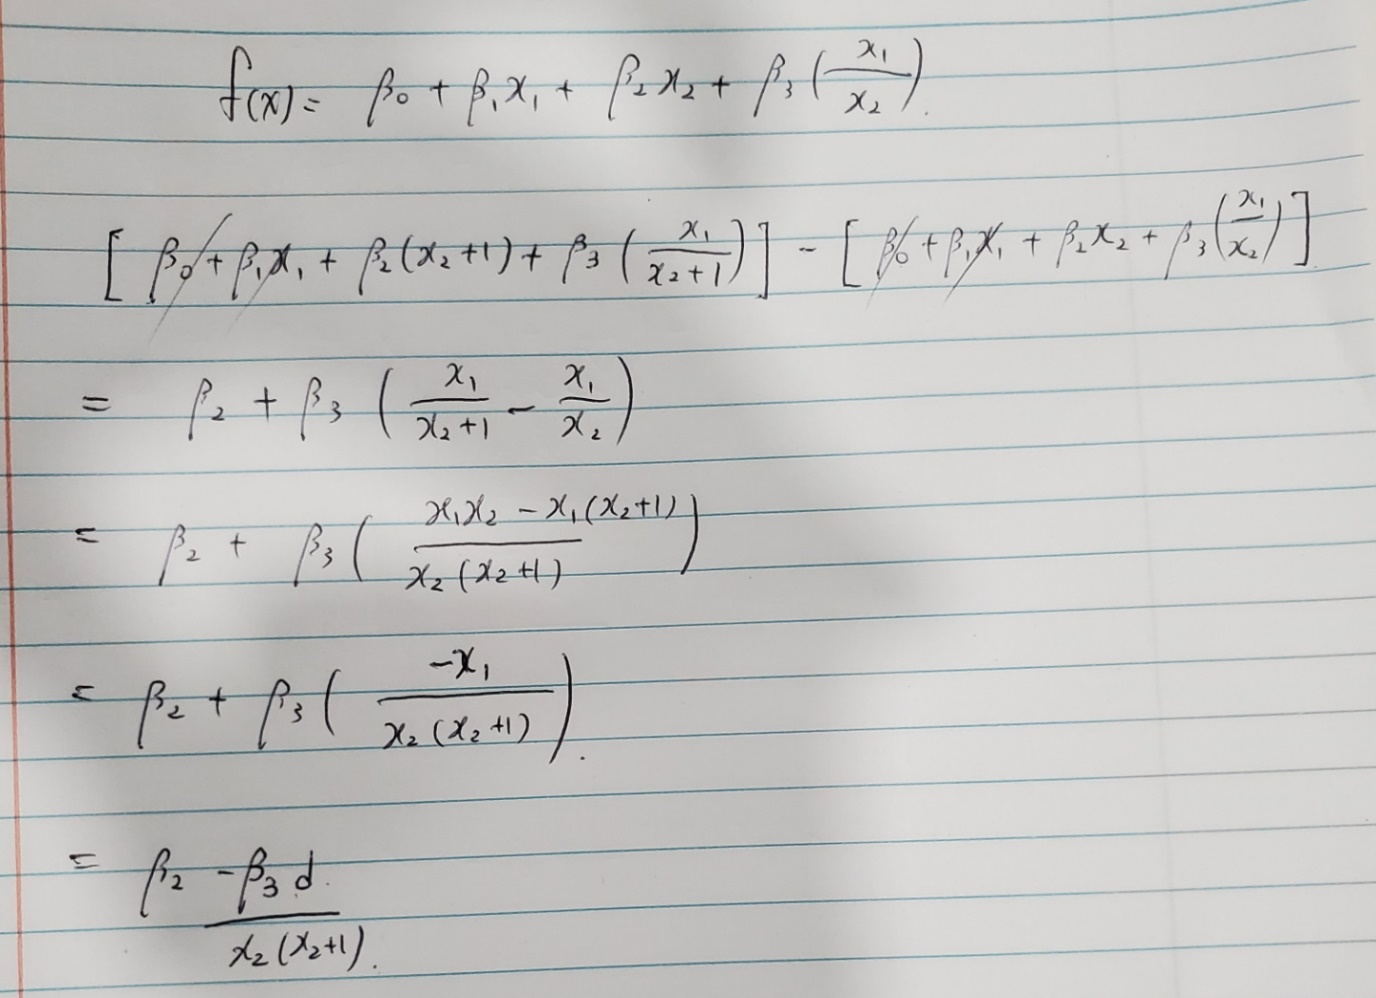 f(x) = β₀ + β₁x₁ + β₂x₂ + β₃(x₁/x₂).
[β₀ + β₁x₁ + β₂(x₂+1) + β₃(x₁/(x₂+1))] - [β₀ + β₁x₁ + β₂x₂ + β₃(x₁/x₂)]
= β₂ + β₃(x₁/(x₂+1) - x₁/x₂)
= β₂ + β₃((x₁x₂ - x₁(x₂+1))/(x₂(x₂+1)))
= β₂ + β₃(-x₁/(x₂(x₂+1))).
= β₂ -β₃d/(x₂(x₂+1)).